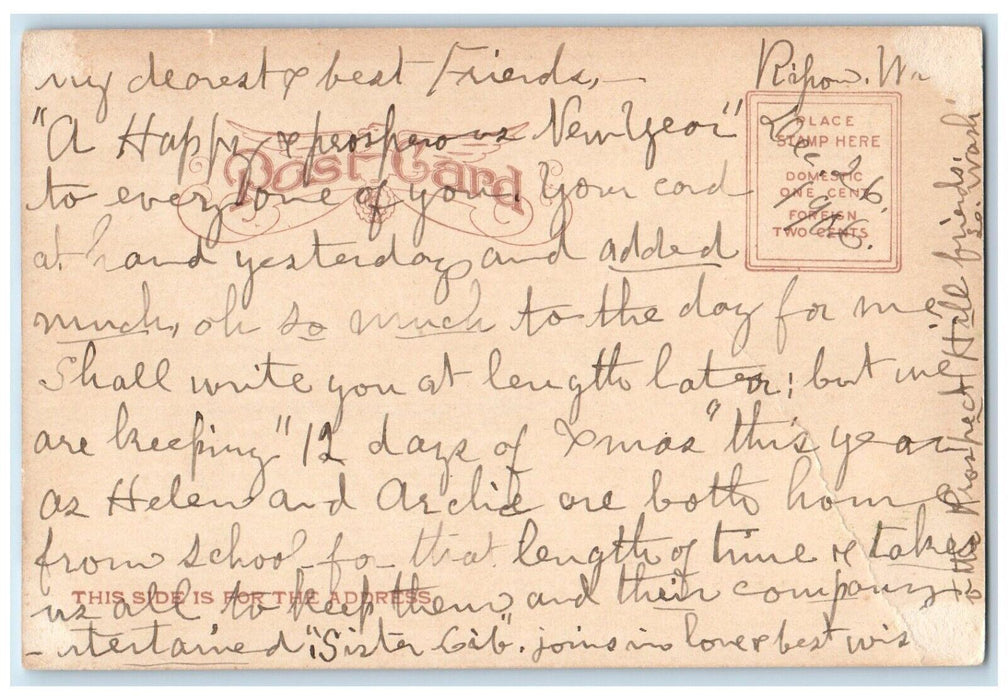 my dearest & best Friends,— Ripon. W
"A Happy & prosperous New Year"
to every one of you. Your card
at hand yesterday and added
much, oh so much to the day for me
Shall write you at length later; but we
are keeping "12 days of Xmas" this year
as Helen and Archie are both home
from school for that length of time & takes
us all to keep them and their company
-ntertained "Sister Gib". joins in love & best wis
Post Card
PLACE
STAMP HERE
DOMESTIC
ONE CENT
FOREIGN
TWO CENTS
26.
THIS SIDE IS FOR THE ADDRESS
to the Prospect Hill friends in
So. Wash